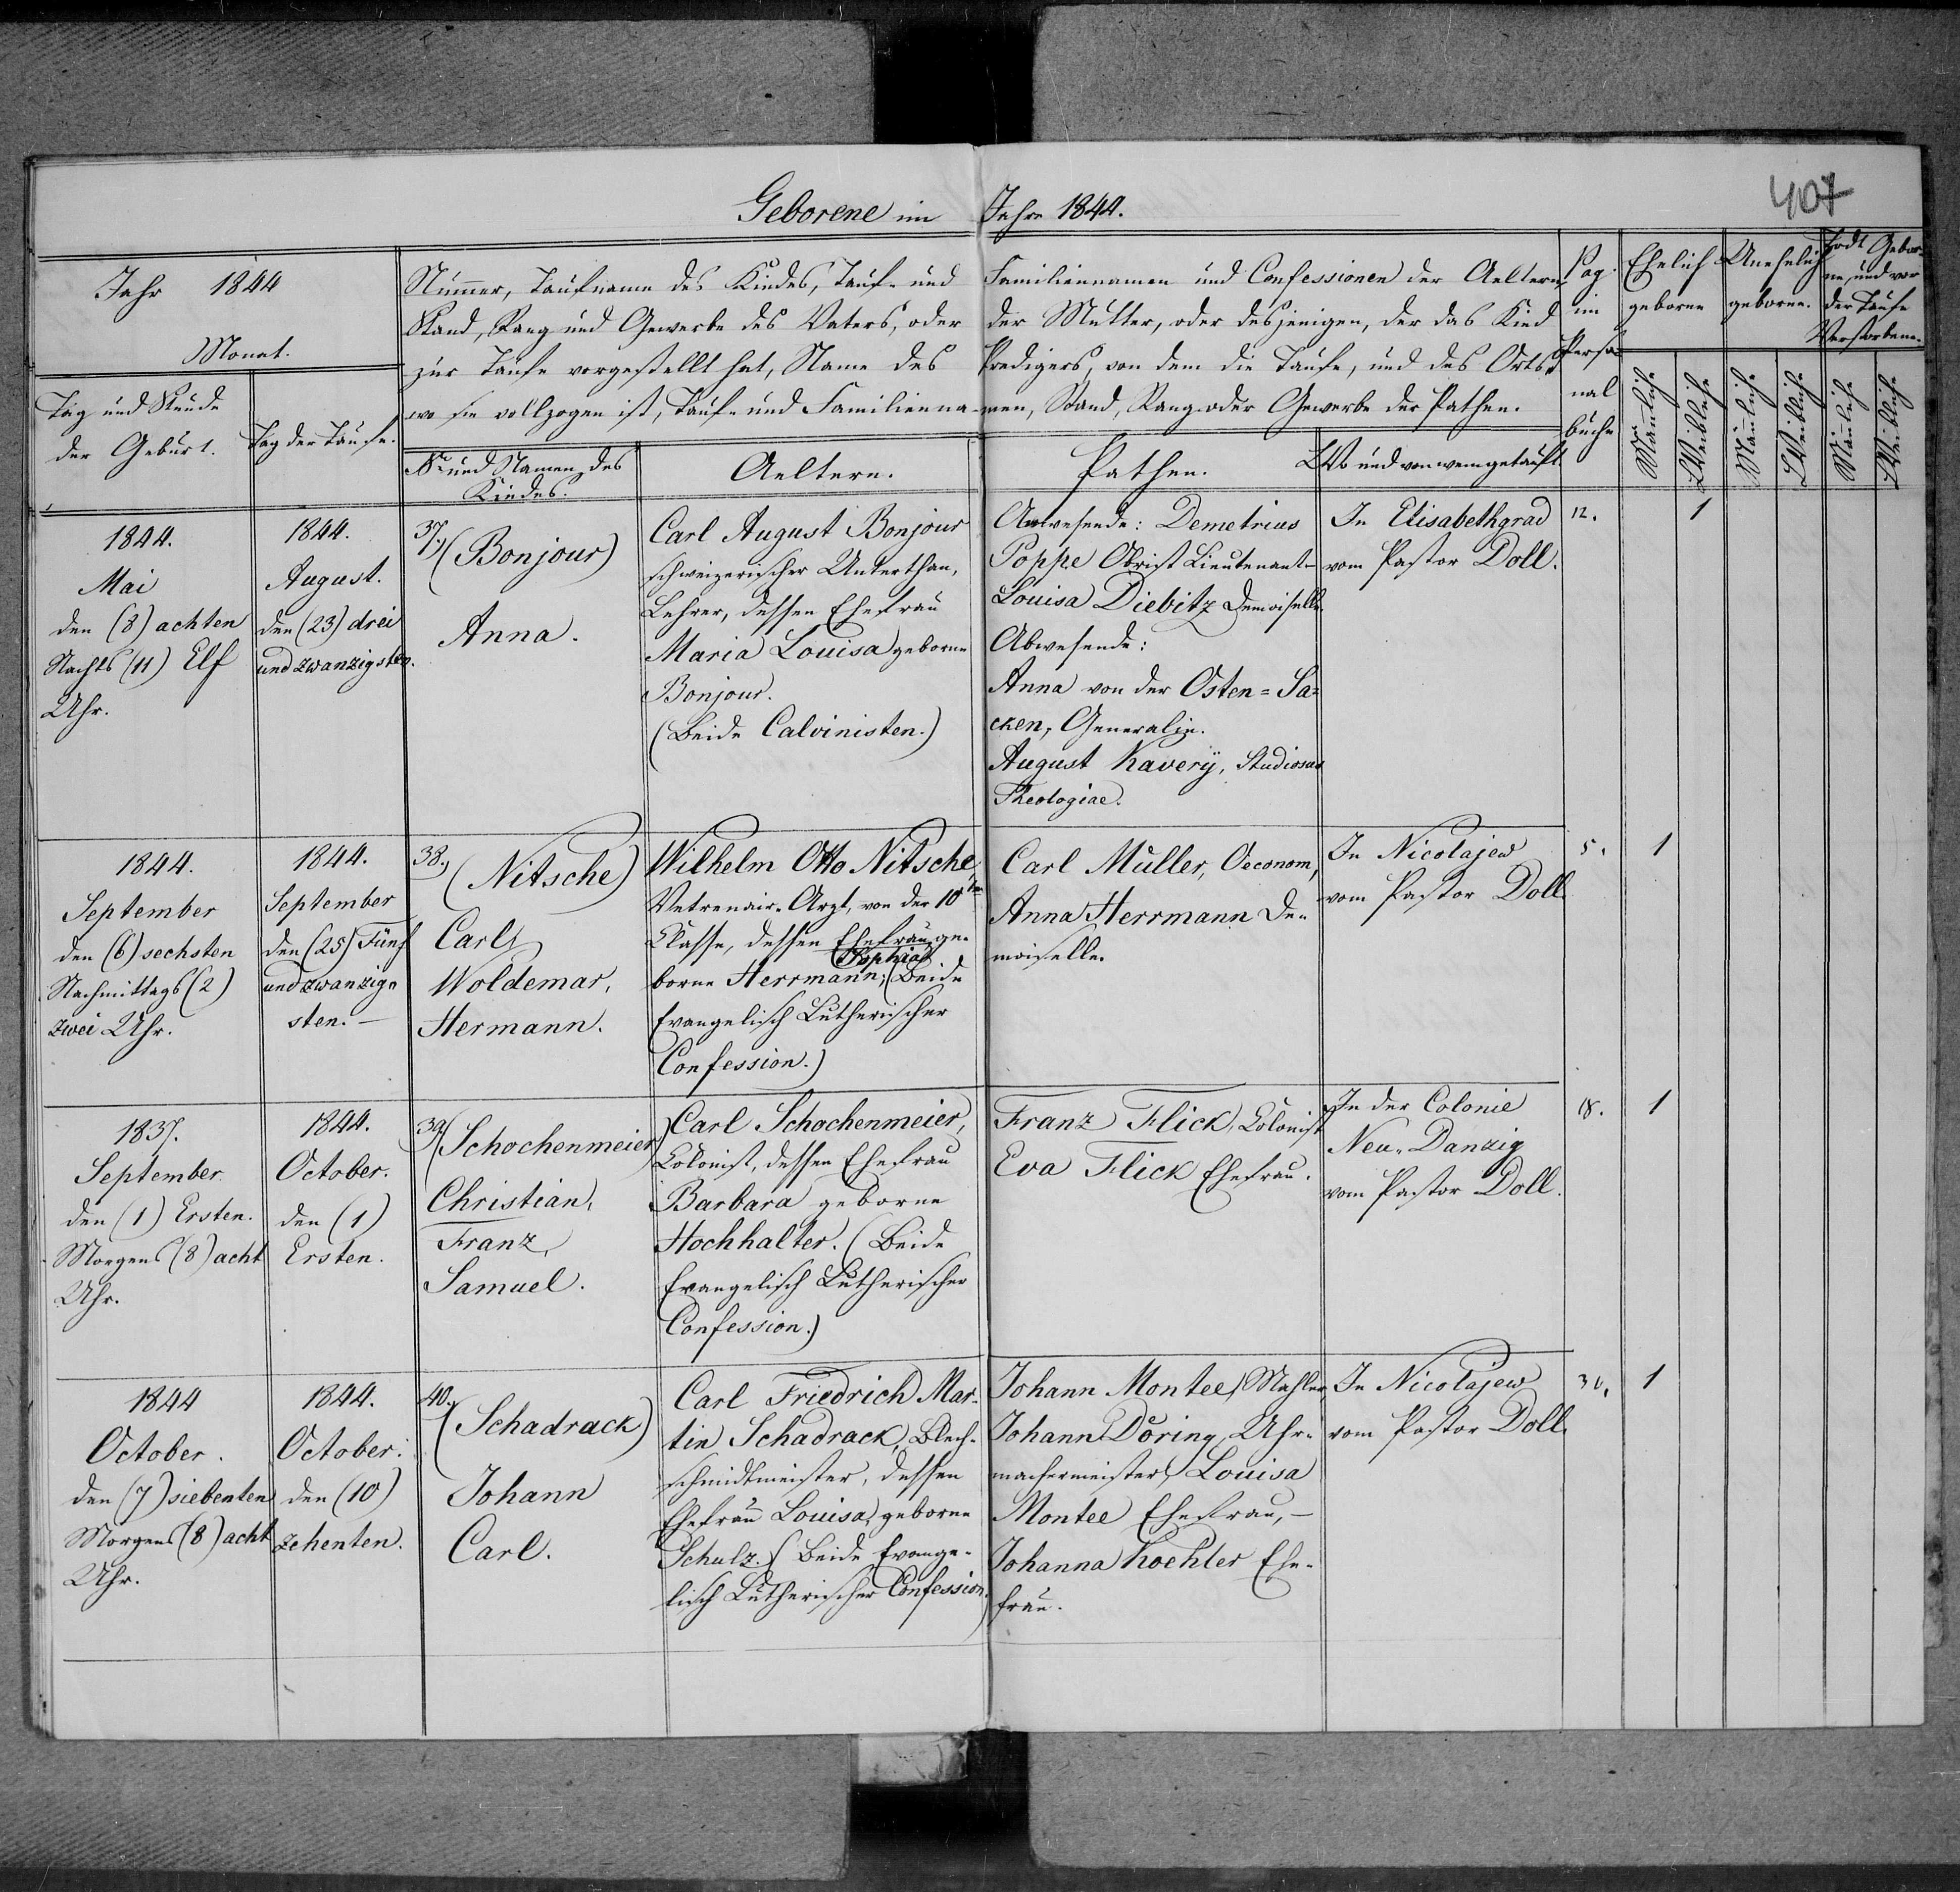 407
Geborene im Jahre 1844.
Jahr 1844
Monat.
Tag und Stunde
der Geburt.
Tag der Taufe.
Nummer, Taufname des Kindes, Tauf- und Familiennamen und Confessionen der Aeltern,
Stand, Rang und Gewerbe des Vaters, oder der Mutter, oder desjenigen, der das Kind
zur Taufe vorgestellt hat, Name des Predigers, von dem die Taufe, und des Orts,
wo sie vollzogen ist, Tauf- und Familienna-men, Stand, Rang oder Gewerbe der Pathen.
Nr. und Namen des
Kindes.
Aeltern.
Pathen.
Wo und von wem getauft.
Pag.
im
Perso-
nal
buche
Ehelich
geborne
Unehelich
geborne.
Todt Gebor-
ne, und vor
der Taufe
Verstorbene.
Männliche
Weibliche
Männliche
Weibliche
Männliche
Weibliche
1844.
Mai
den (8) achten
Nachts (11) Elf
Uhr.
1844.
August.
den (23) drei
und zwanzigsten.
37.) (Bonjour)
Anna.
Carl August Bonjour
schweizerischer Unterthan,
Lehrer, dessen Ehefrau
Maria Louisa geborne
Bonjour.
(Beide Calvinisten.)
Anwesende: Demetrius
Poppe Obrist Lieutenant-
Louisa Diebitz Demoiselle.
Abwesende:
Anna von der Osten=Sa=
cken, Generalin.
August Kavery, Studiosus
Theologiae.
In Elisabethgrad
vom Pastor Doll.
12.
1
1844.
September
den (6) sechsten
Nachmittags (2)
zwei Uhr.
1844.
September
den (25) Fünf
und zwanzig-
sten.-
38.) (Nitsche)
Carl
Woldemar,
Hermann.
Wilhelm Otto Nitsche,
Vetrenair-Arzt, von der 10ten
Classe, dessen Ehefrau ge-
Sophia
borne Herrmann; (Beide
Evangelisch Lutherischer
Confession.)
Carl Müller, Oeconom,
Anna Herrmann De-
moiselle.
In Nicolajew
vom Pastor Doll.
5.
1
1837.
September
den (1) Ersten.
Morgens (8) acht
Uhr.
1844.
October.
den (1)
Ersten.
39) (Schochenmeier)
Christian,
Franz,
Samuel.
Carl Schochenmeier,
Colonist, dessen Ehefrau
Barbara geborne
Hochhalter. (Beide
Evangelisch Lutherischer
Confession.)
Franz Flick, Colonist
Eva Flick Ehefrau.
In der Colonie
Neu-Danzig
vom Pastor Doll.
18.
1
1844
October.
den (7) siebenten
Morgens (8) acht
Uhr.
1844.
October.
den (10)
zehenten.
40. (Schadrack)
Johann
Carl.
Carl Friedrich Mar-
tin Schadrack, Blech-
schmidtmeister, dessen
Ehefrau Louisa, geborne
Schulz. (Beide Evange-
lisch Lutherischer Confession.)
Johann Montee, Mahler,
Johann Döring, Uhr-
machermeister, Louisa
Montee Ehefrau,-
Johanna Koehler Ehe-
frau.
In Nicolajew
vom Pastor Doll.
30.
1